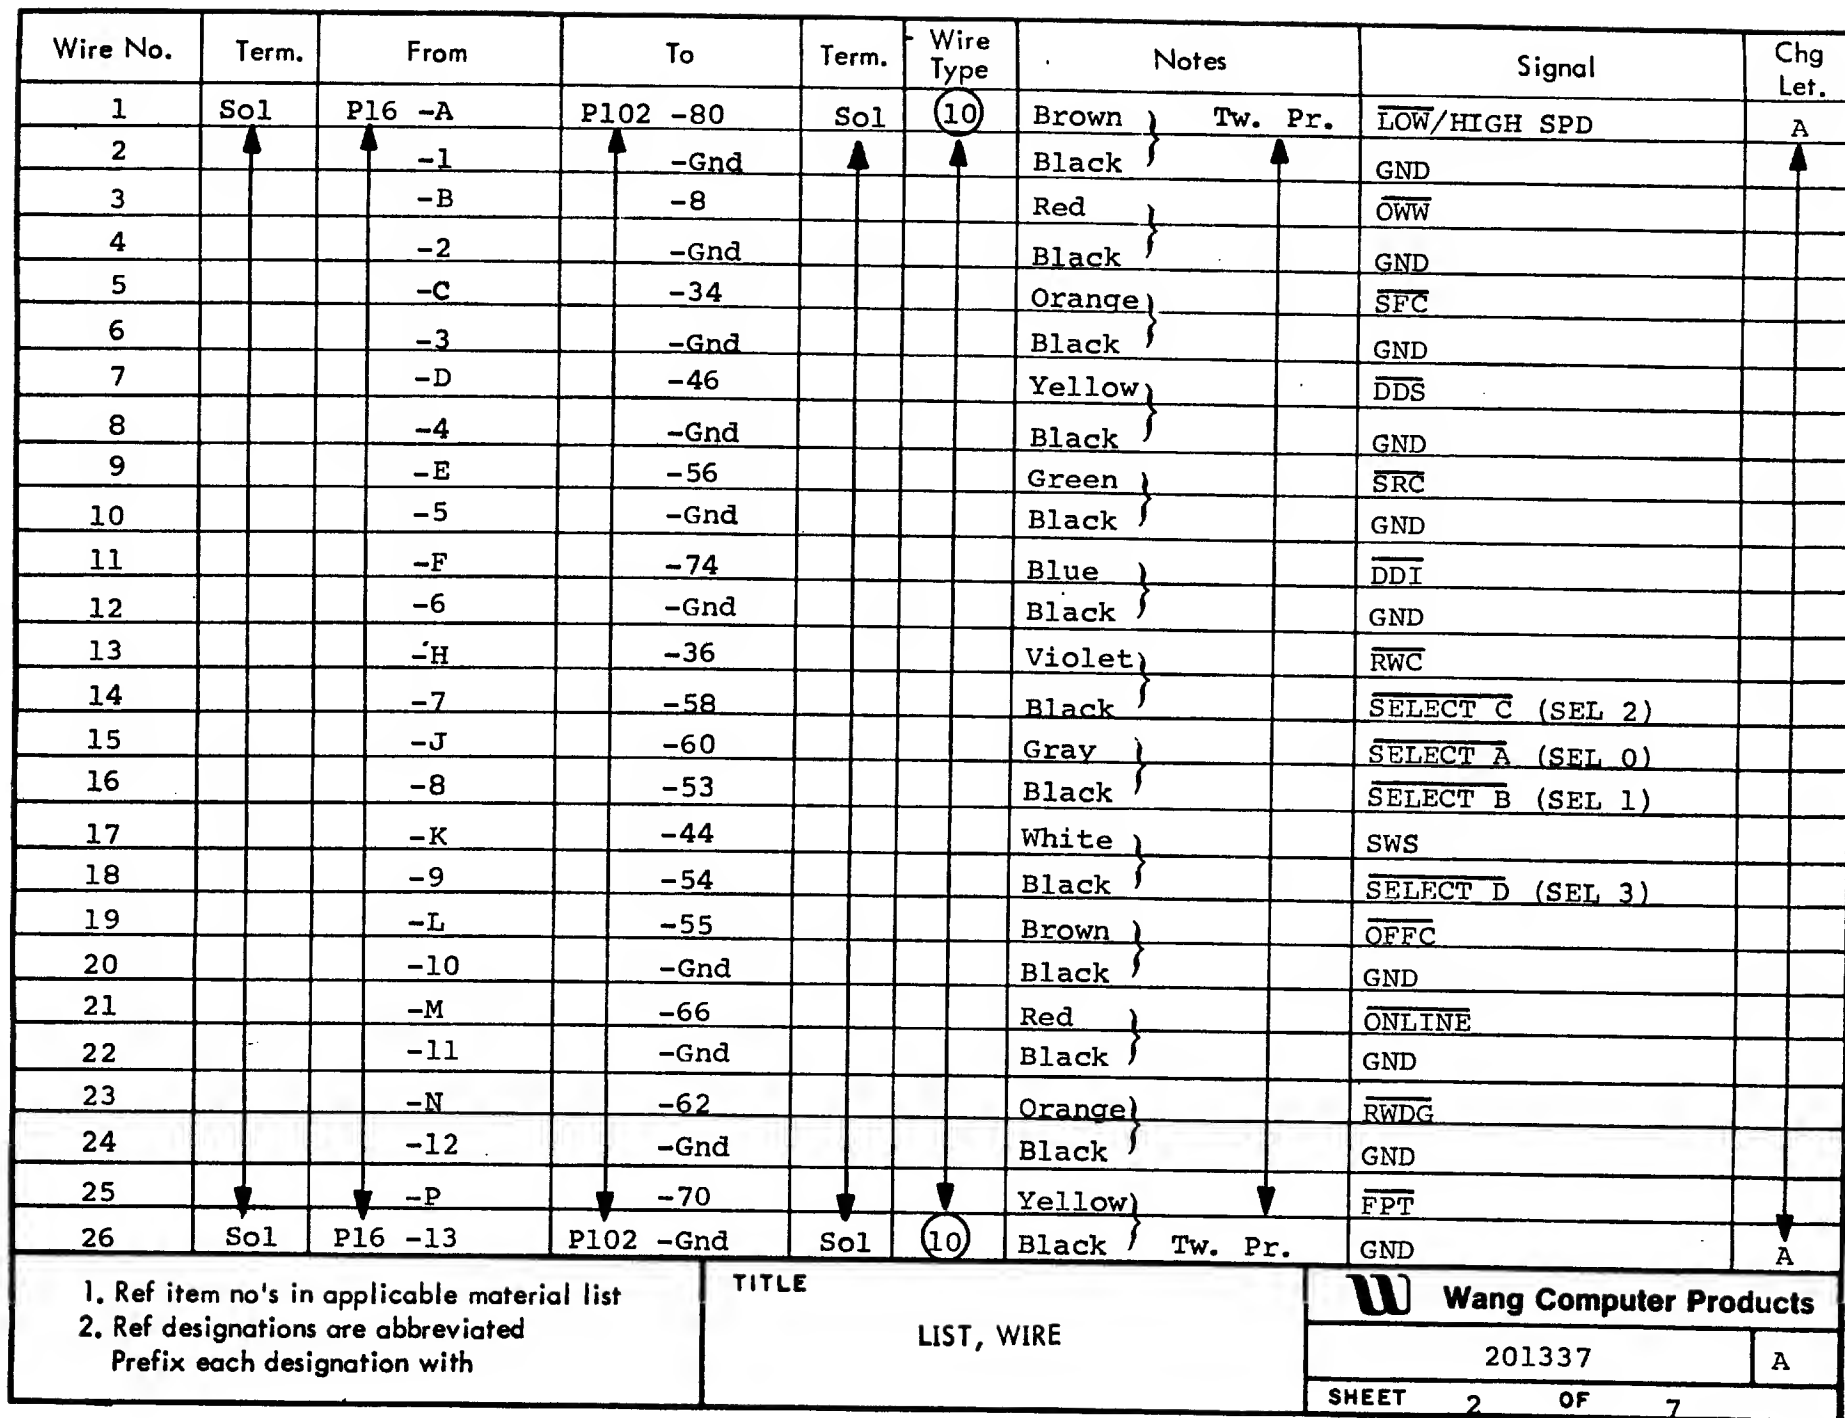 Wire No. Term. From To Term. Wire Type Notes Signal Chg Let.
1 Sol P16 -A P102 -80 Sol 10 Brown Tw. Pr. L̅O̅W̅/HIGH SPD A
2 -1 -Gnd Black GND
3 -B -8 Red O̅W̅W̅
4 -2 -Gnd Black GND
5 -C -34 Orange S̅F̅C̅
6 -3 -Gnd Black GND
7 -D -46 Yellow D̅D̅S̅
8 -4 -Gnd Black GND
9 -E -56 Green S̅R̅C̅
10 -5 -Gnd Black GND
11 -F -74 Blue D̅D̅I̅
12 -6 -Gnd Black GND
13 -H -36 Violet R̅W̅C̅
14 -7 -58 Black S̅E̅L̅E̅C̅T̅ ̅C̅ (SEL 2)
15 -J -60 Gray S̅E̅L̅E̅C̅T̅ ̅A̅ (SEL 0)
16 -8 -53 Black S̅E̅L̅E̅C̅T̅ ̅B̅ (SEL 1)
17 -K -44 White SWS
18 -9 -54 Black S̅E̅L̅E̅C̅T̅ ̅D̅ (SEL 3)
19 -L -55 Brown O̅F̅F̅C̅
20 -10 -Gnd Black GND
21 -M -66 Red O̅N̅L̅I̅N̅E̅
22 -11 -Gnd Black GND
23 -N -62 Orange R̅W̅D̅G̅
24 -12 -Gnd Black GND
25 -P -70 Yellow F̅P̅T̅
26 Sol P16 -13 P102 -Gnd Sol 10 Black Tw. Pr. GND A
1. Ref item no's in applicable material list
2. Ref designations are abbreviated
Prefix each designation with
TITLE
LIST, WIRE
Wang Computer Products
201337 A
SHEET 2 OF 7